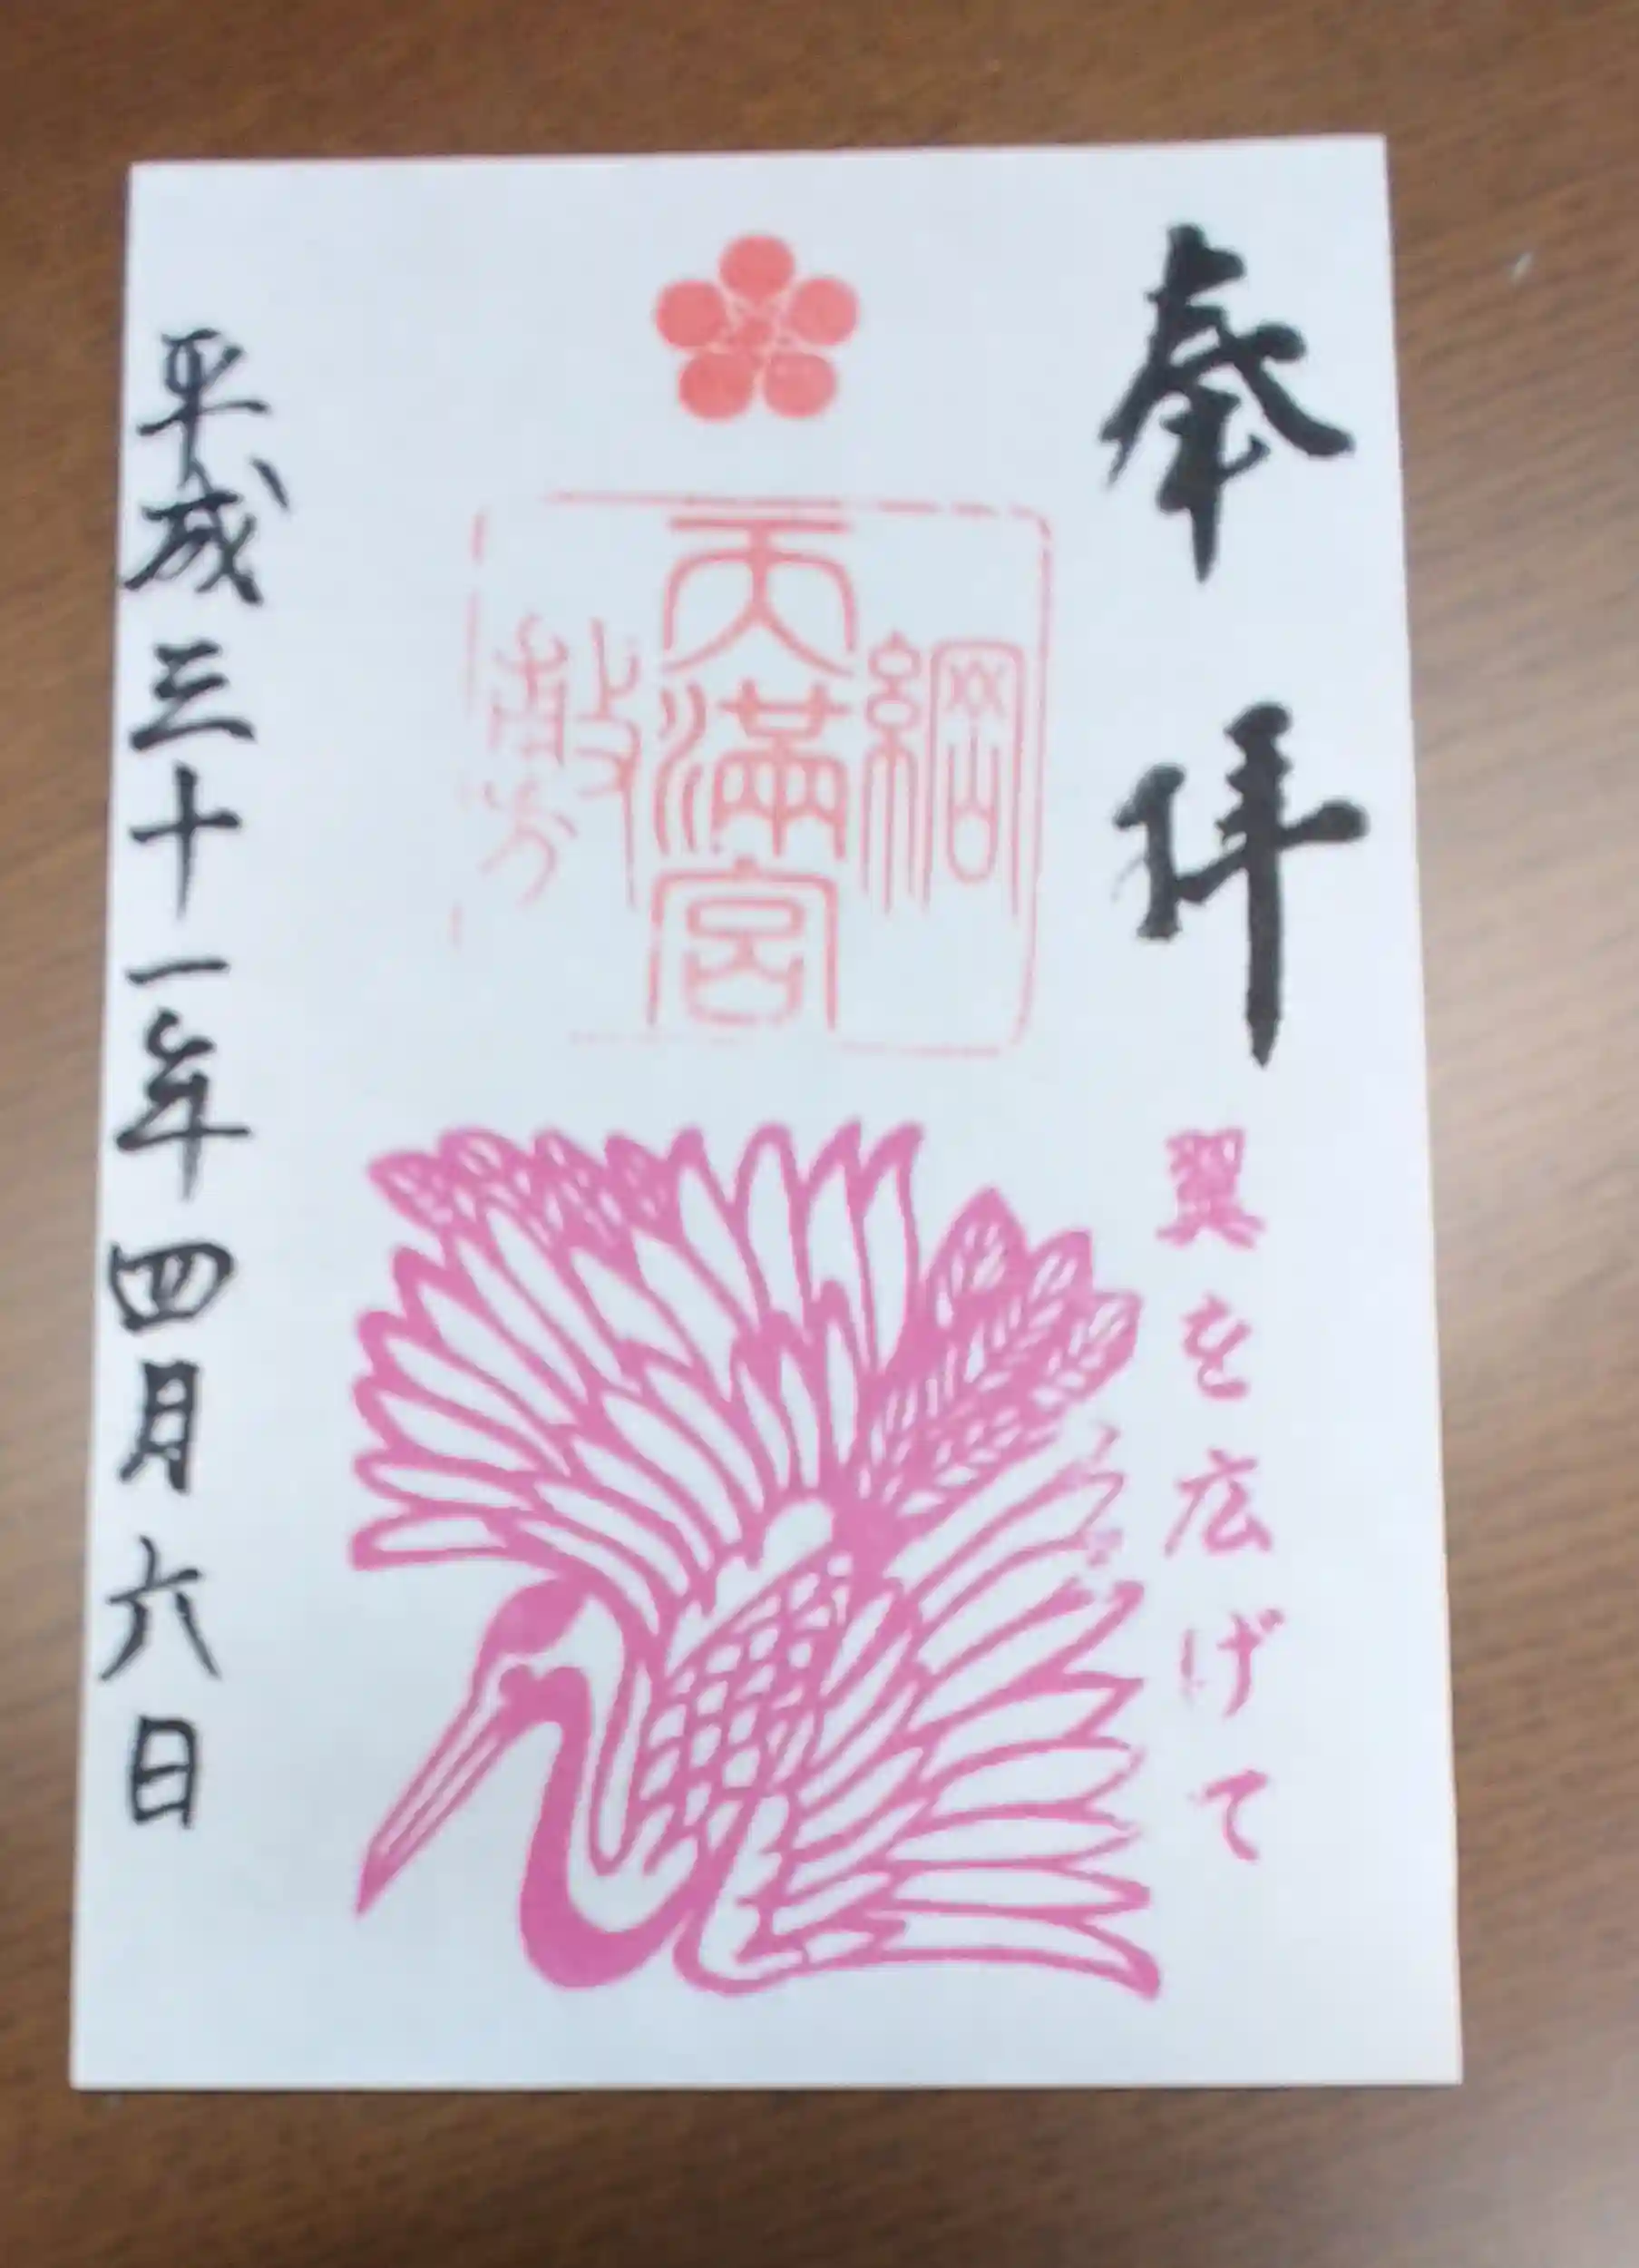 奉拝
翼を広げて
綱
天満宮
敷
平成三十一年四月六日